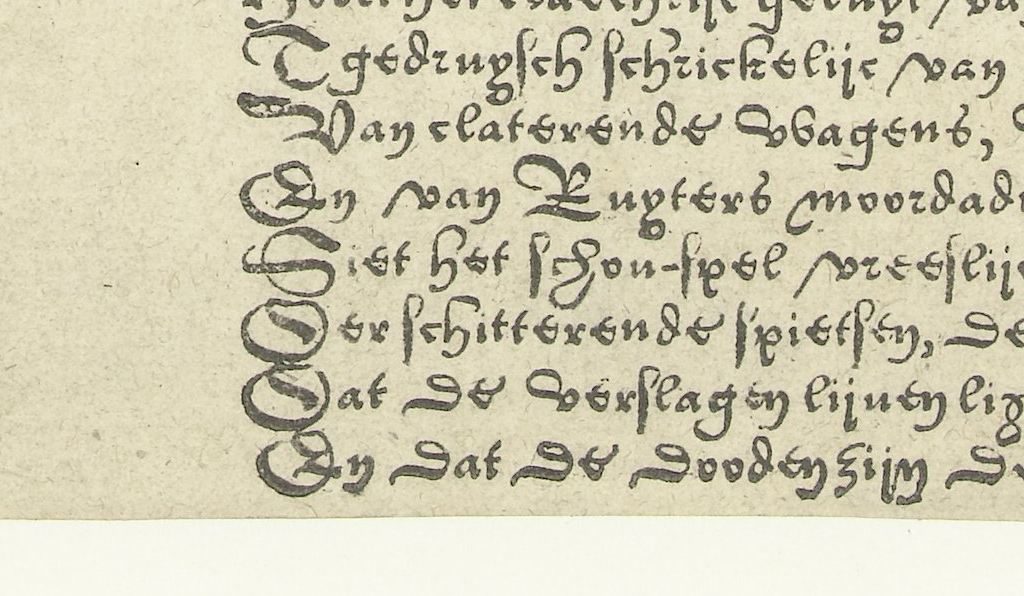 Tgedruysch schrickelijc van
Van claterende Wagens,
En van Ruyters moordad
Siet het schou-spel vreeslij
Der schitterende spietsen, de
Dat de verslagen lijuen lig
En dat de dooden zijn de